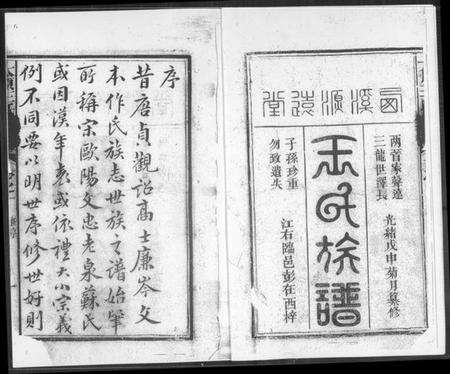 西溪源遠堂
两晉家聲遠
三龍世澤長
光緒戊申菊月纂修
王氏族譜
子孫珍重
勿致遺失
江右臨邑彭在西梓
序
昔唐貞觀詔高士廉岑文
本作氏族志世族之譜始肇
所稱宋歐陽文忠老泉蘇氏
或因漢年表或依禮大小宗義
例不同要以明世序修世好則